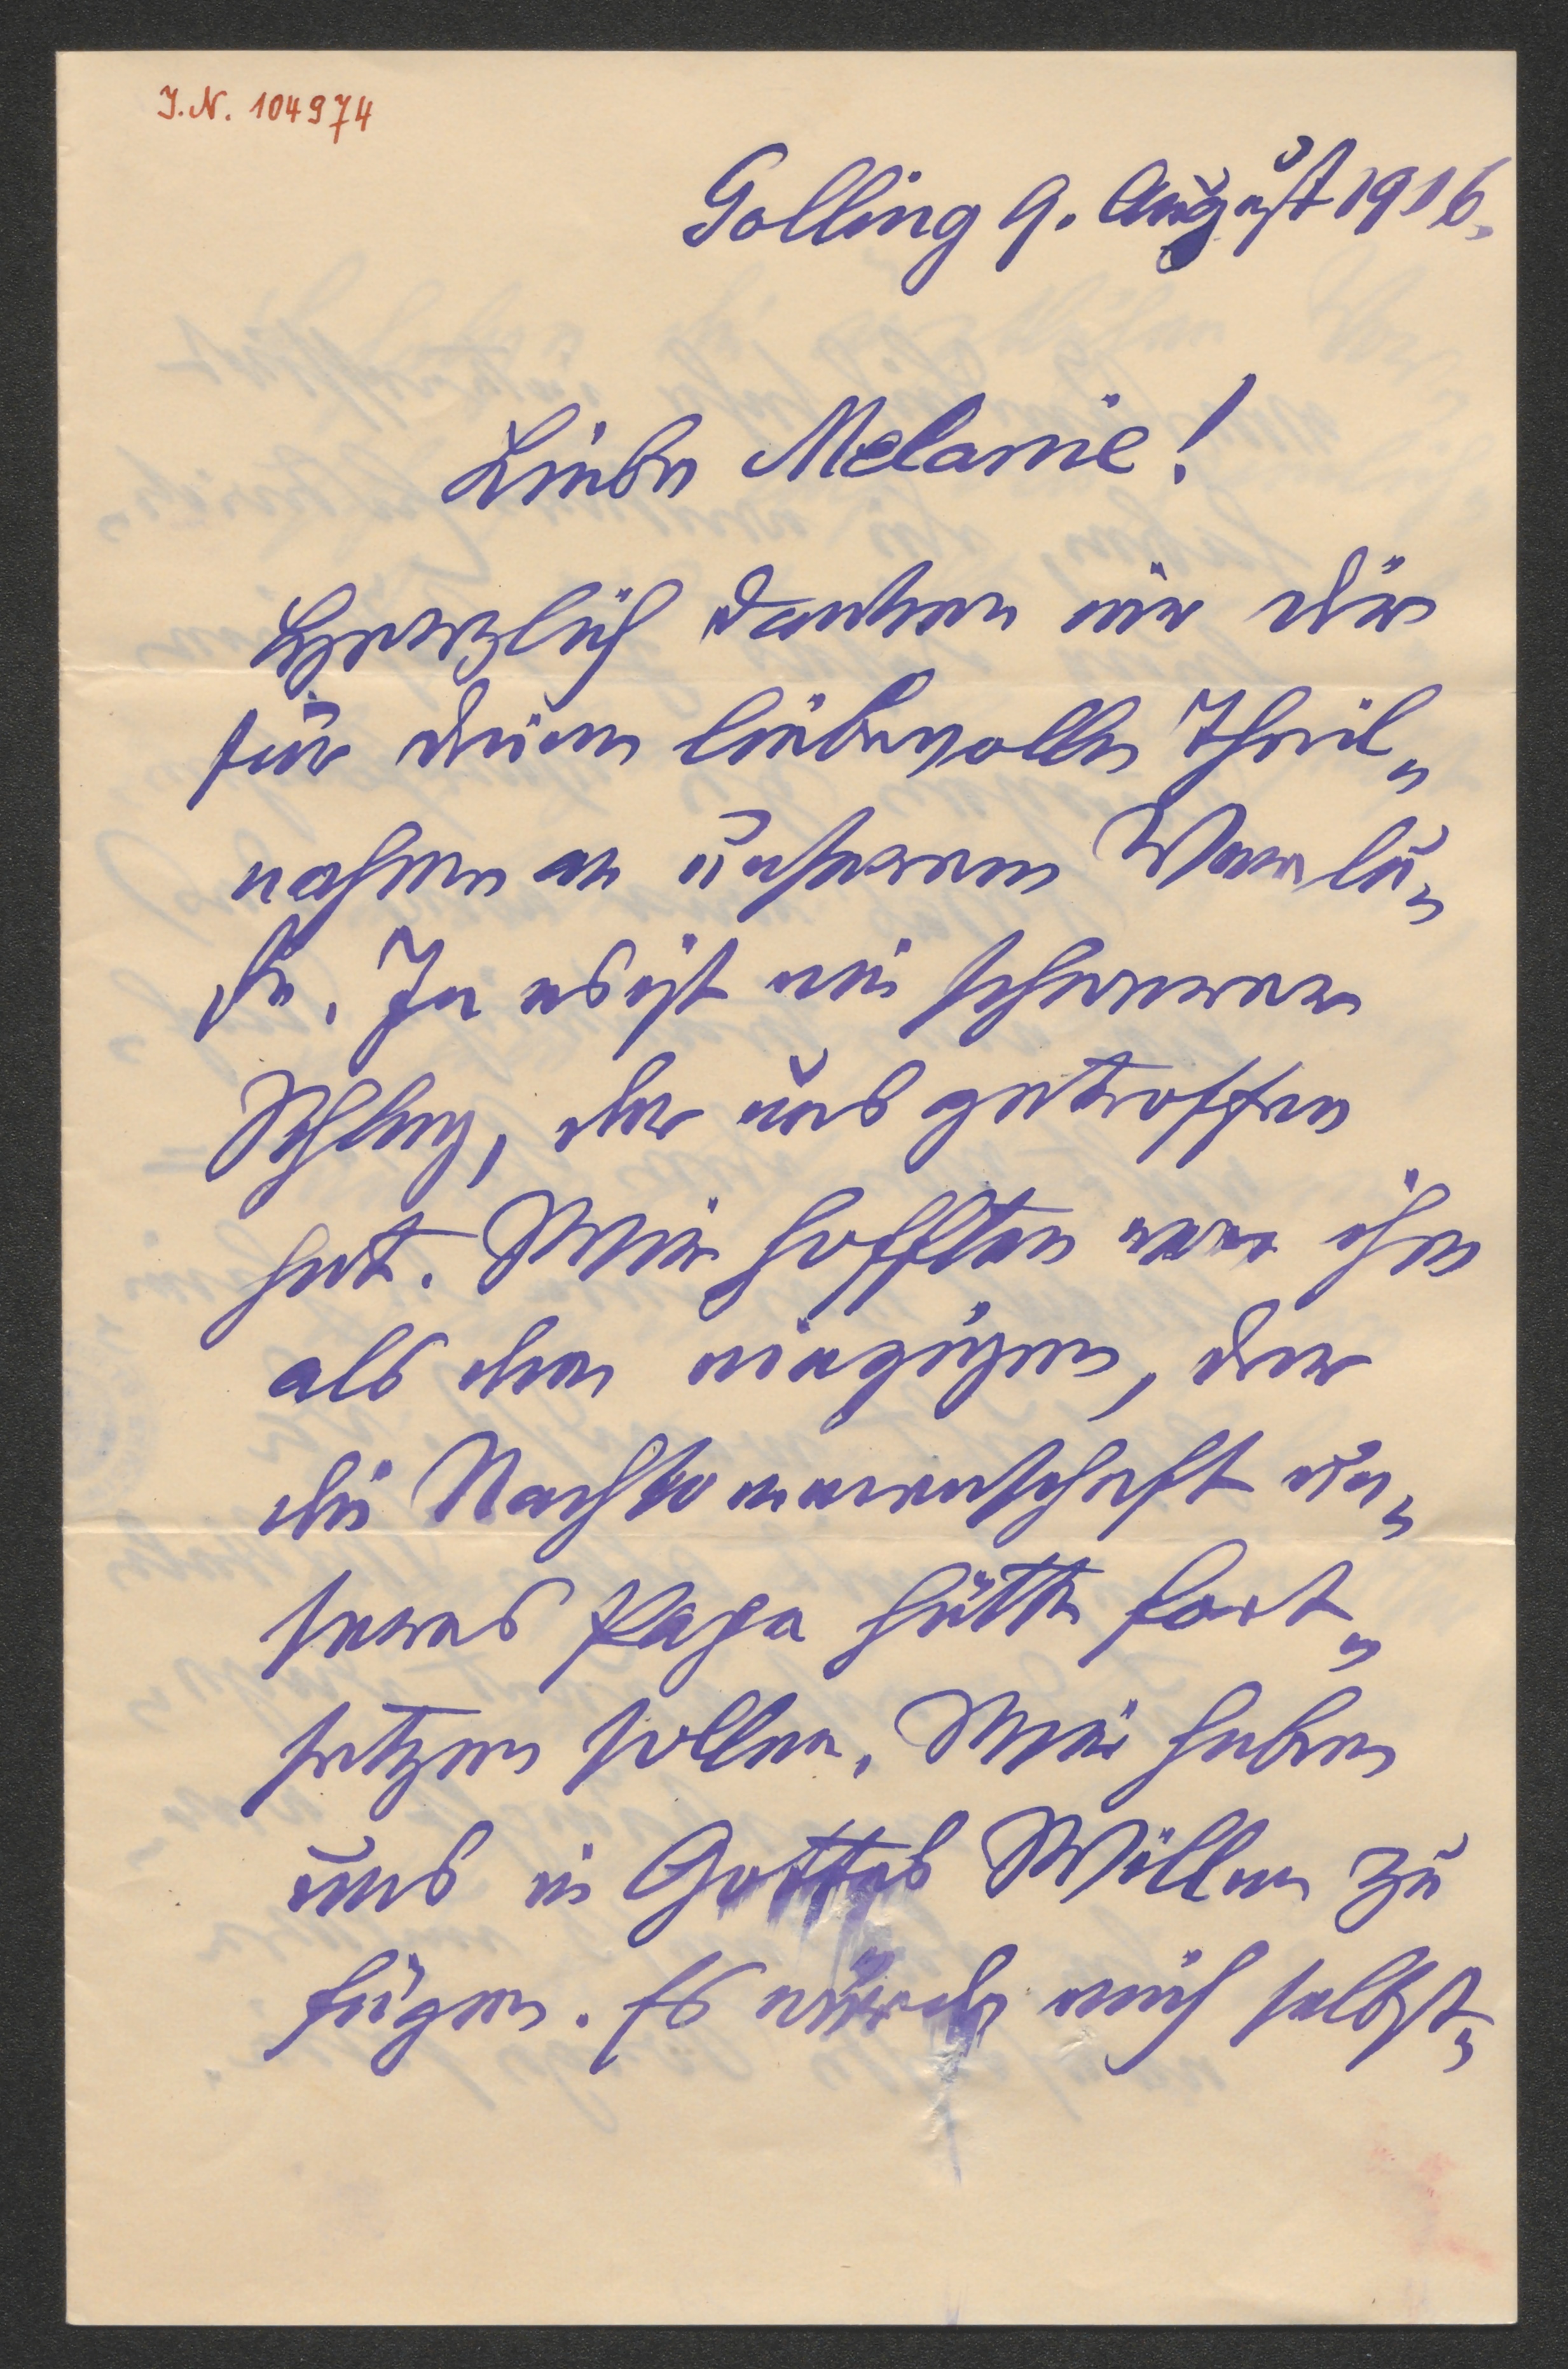 J.N. 104974
Golling 9. August 1916.
Liebe Melanie!
Herzlich danken wir dir
für deine liebevolle Theil„
nahme an unserem Verlu„
ste. Ja es ist ein schwerer
Schlag, der uns getroffen
hat. Wir hofften ihn
als den einzigen, der
die Nachkommenschaft un„
seres Papa hätte fort„
setzen sollen. Wir haben
uns in Gottes Willen zu
fügen. Es würde mich selbst„